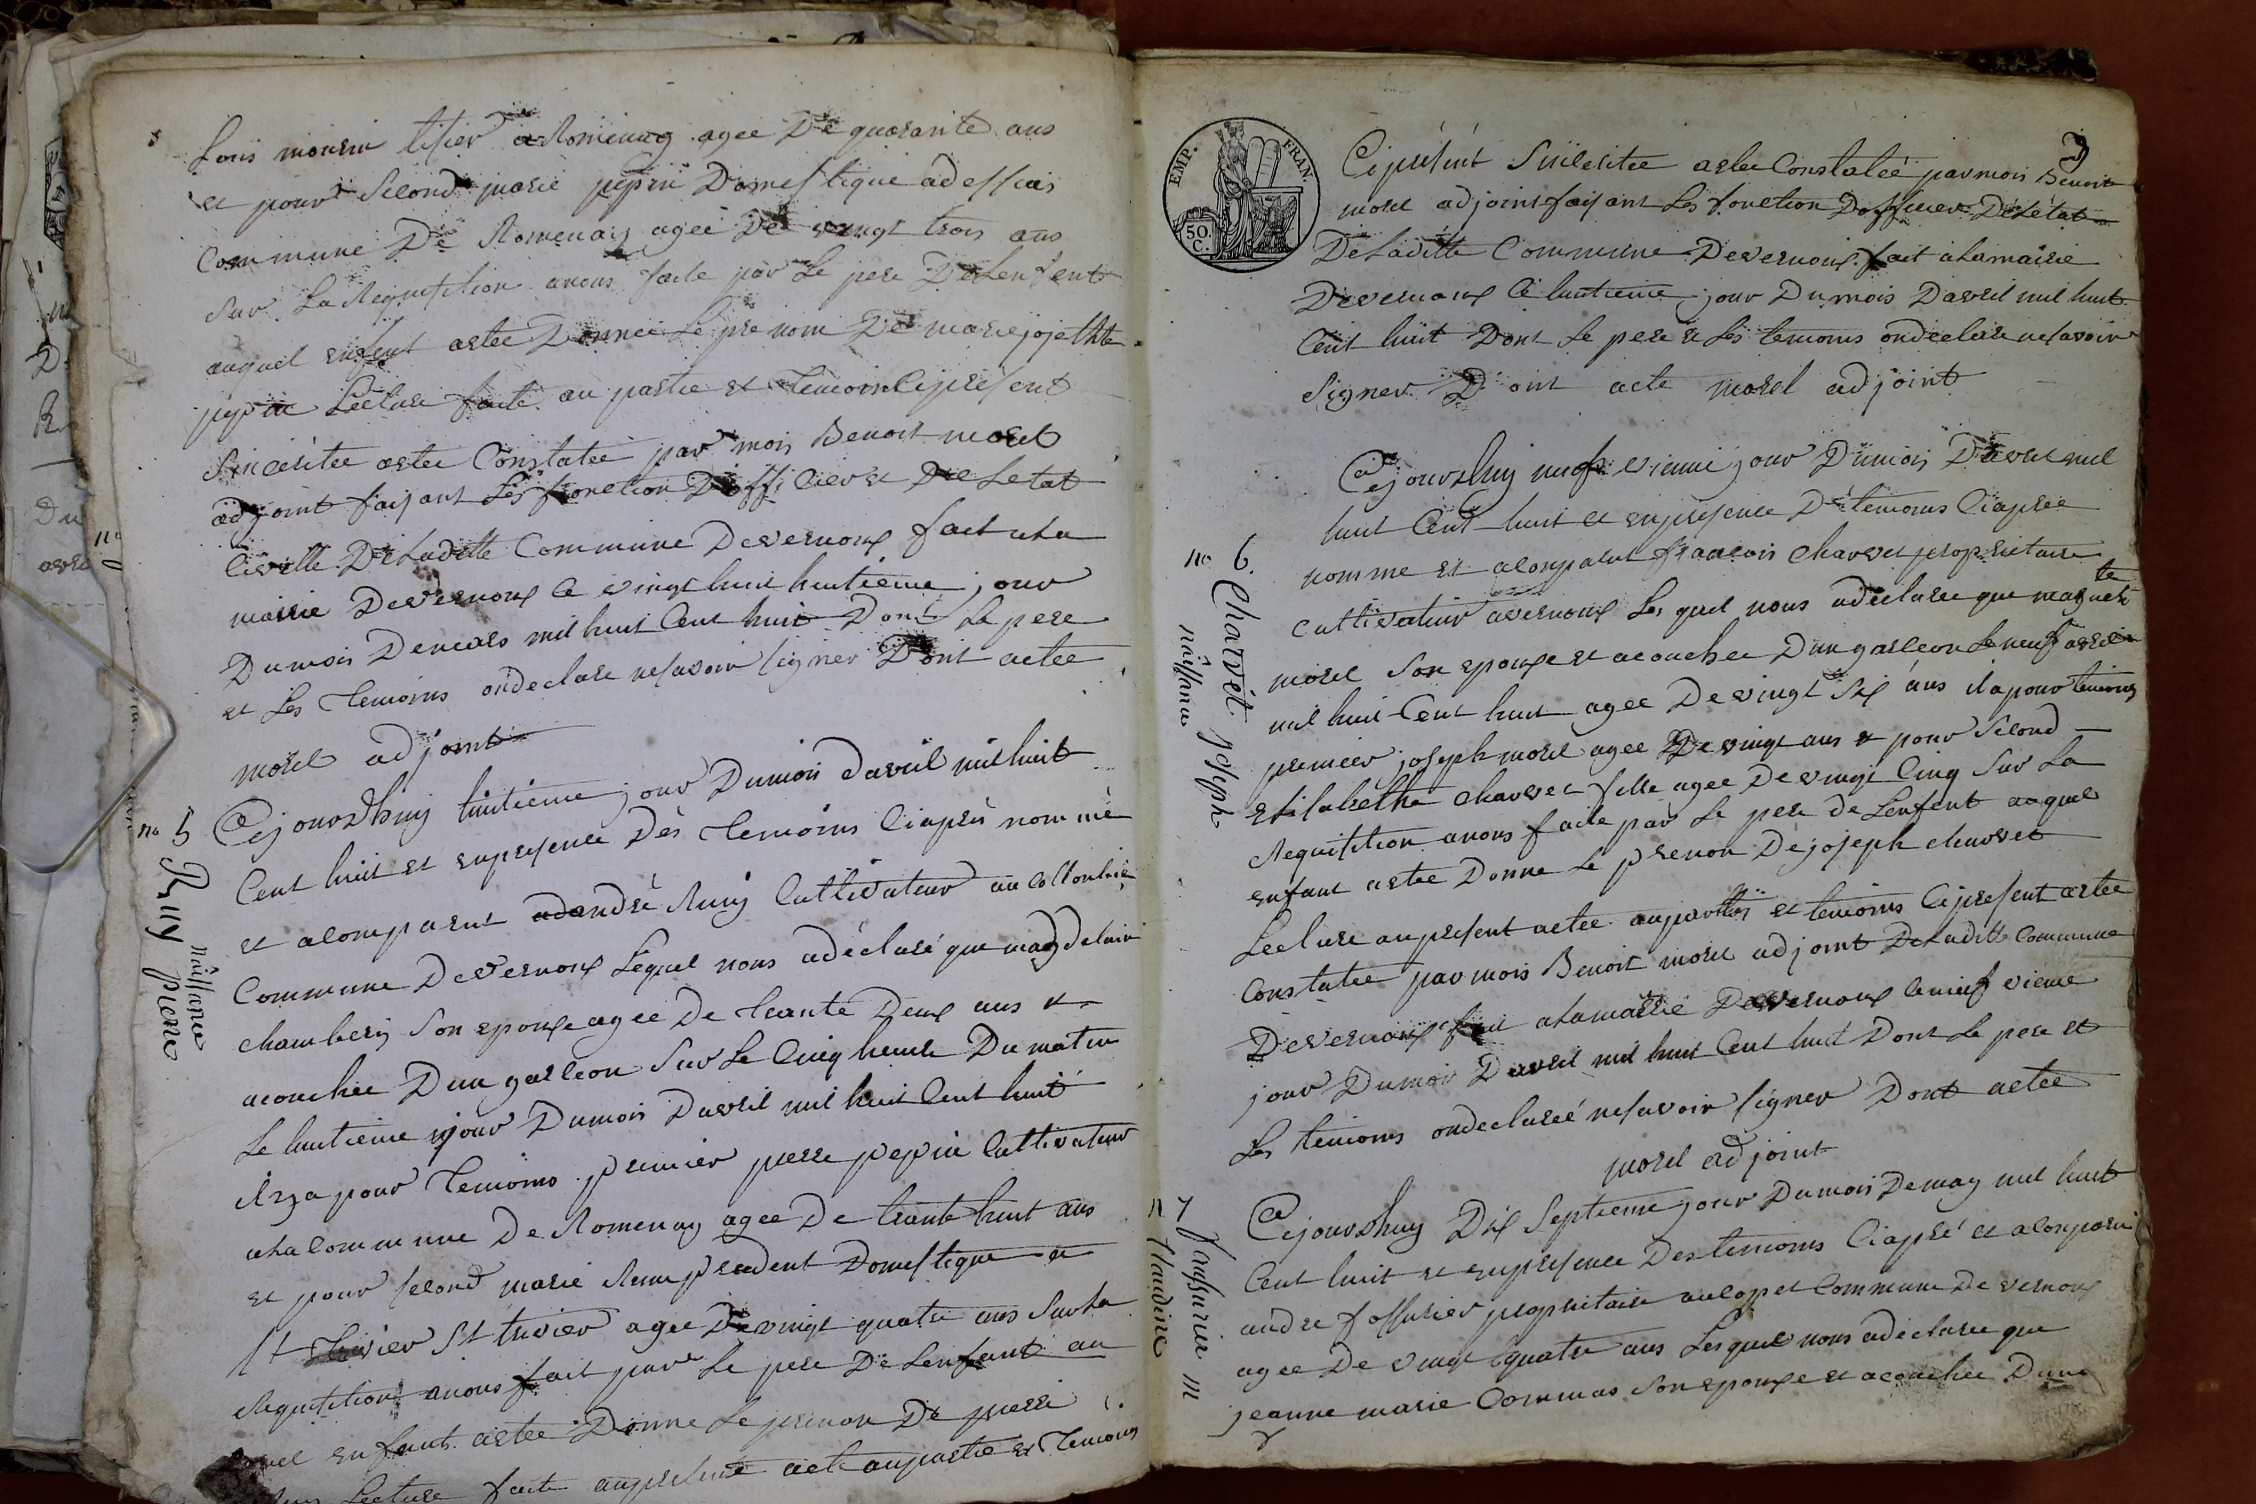 Louis mourin tisier a Romenay agee De quarante ans
et pour Second marie pepin Domestique a
Commune De Romenay agee De vingt trois ans
Sur La Requisition anous faite par Le pere De Lenfent
auquel enfent aetee Donnee Le pre nom De marie
pepin Lecture faite au partie et temoin Cipresent
Sinceritee aetee Constatee par mois Benoit morel
adjoint faisant Les fonction Dofficier De Letat
Civille De Laditte Commune Devernoux fait ala
mairie Devernoux Ce vingt huit huitieme jour
Dumois Demars mil huit Cent huit Dont Le pere
et Les temoins ondeclare nesavoir signer Dont actee
morel adjoint
no 5
Ruy pierre
naissance
Cejourdhuy huitieme jour Dumois davril mil huit
Cent huit et enpresence Des temoins Ciaprès nommé
et acomparut andré Ruiy Cultivateur au
Commune Devernoux Lequel nous adéclaré que magdelaine
chambery Son epouse agee De trante Deux ans et
acouchée Dun garcon Sur Le Cinq heure Du matin
Le huitieme jour Dumois Davril mil huit Cent huit
il ya pour temoins premier pierre pepin Cultivateur
ala Commune De Romenay agee De trante huit ans
et pour second marie Domestique a
St trivier agee De vingt quatre ans Sur La
Requisition anous fait par Le pere De Lenfant au
quel enfant aetee Donne Le prenon De pierre
Lecture faite aupresent acte aupartie et temoins
EMP. FRAN.
50. C.
3
Cipresent Sincéritée aetee Constatée parmois Benoit
morel adjoint faisant Les fonction Dofficier De Létat
De Laditte Commune Devernoux fait alamairie
Devernoux Ce huitieme jour Dumois Davril mil huit
Cent huit Dont Le pere et Les temoins ondeclare nesavoir
Signer Dont acte morel adjoint
no 6.
Charvet joseph
naissance
Cejourdhuy neufvieme jour Dumois Davril mil
huit Cent huit et enpresence De temoins Ciaprée
nomme et acomparut francois Charvet proprietaire
cultivateur avernoux Les quel nous adeclaree que marguerite
morel Son epouse et acouchee Dun garcon Le neuf avril
mil huit Cent huit agee De vingt Six ans il a pour temoins
premier joseph morel agee De vingt ans et pour Second
Elisabethe Charvet fille agee De vingt Cinq Sur La
Requisition anous faite par Le pere de Lenfent auquel
enfant aetee Donne Le prenon De joseph charvet
Lecture aupresent actee aupartis et temoins Cipresent aetee
Constatee parmois Benoit morel adjoint DeLaditte Commune
Devernoux fait alamairie Devernoux Ce neufvieme
jour Dumois Davril mil huit Cent huit Dont Le pere et
Les temoins ondeclareé nesavoir signer Dont actee
morel adjoint
n 7
Claudine
Cejourdhuy Dix Septieme jour Dumois Demay mil huit
Cent huit et enpresence Des temoins Ciapré et acomparu
andre fossurier proprietaire Commune De vernoux
agee De vingt quatre ans Lesquel nous adeclaree que
jeanne marie Commas Son epouse et acouchee Dune